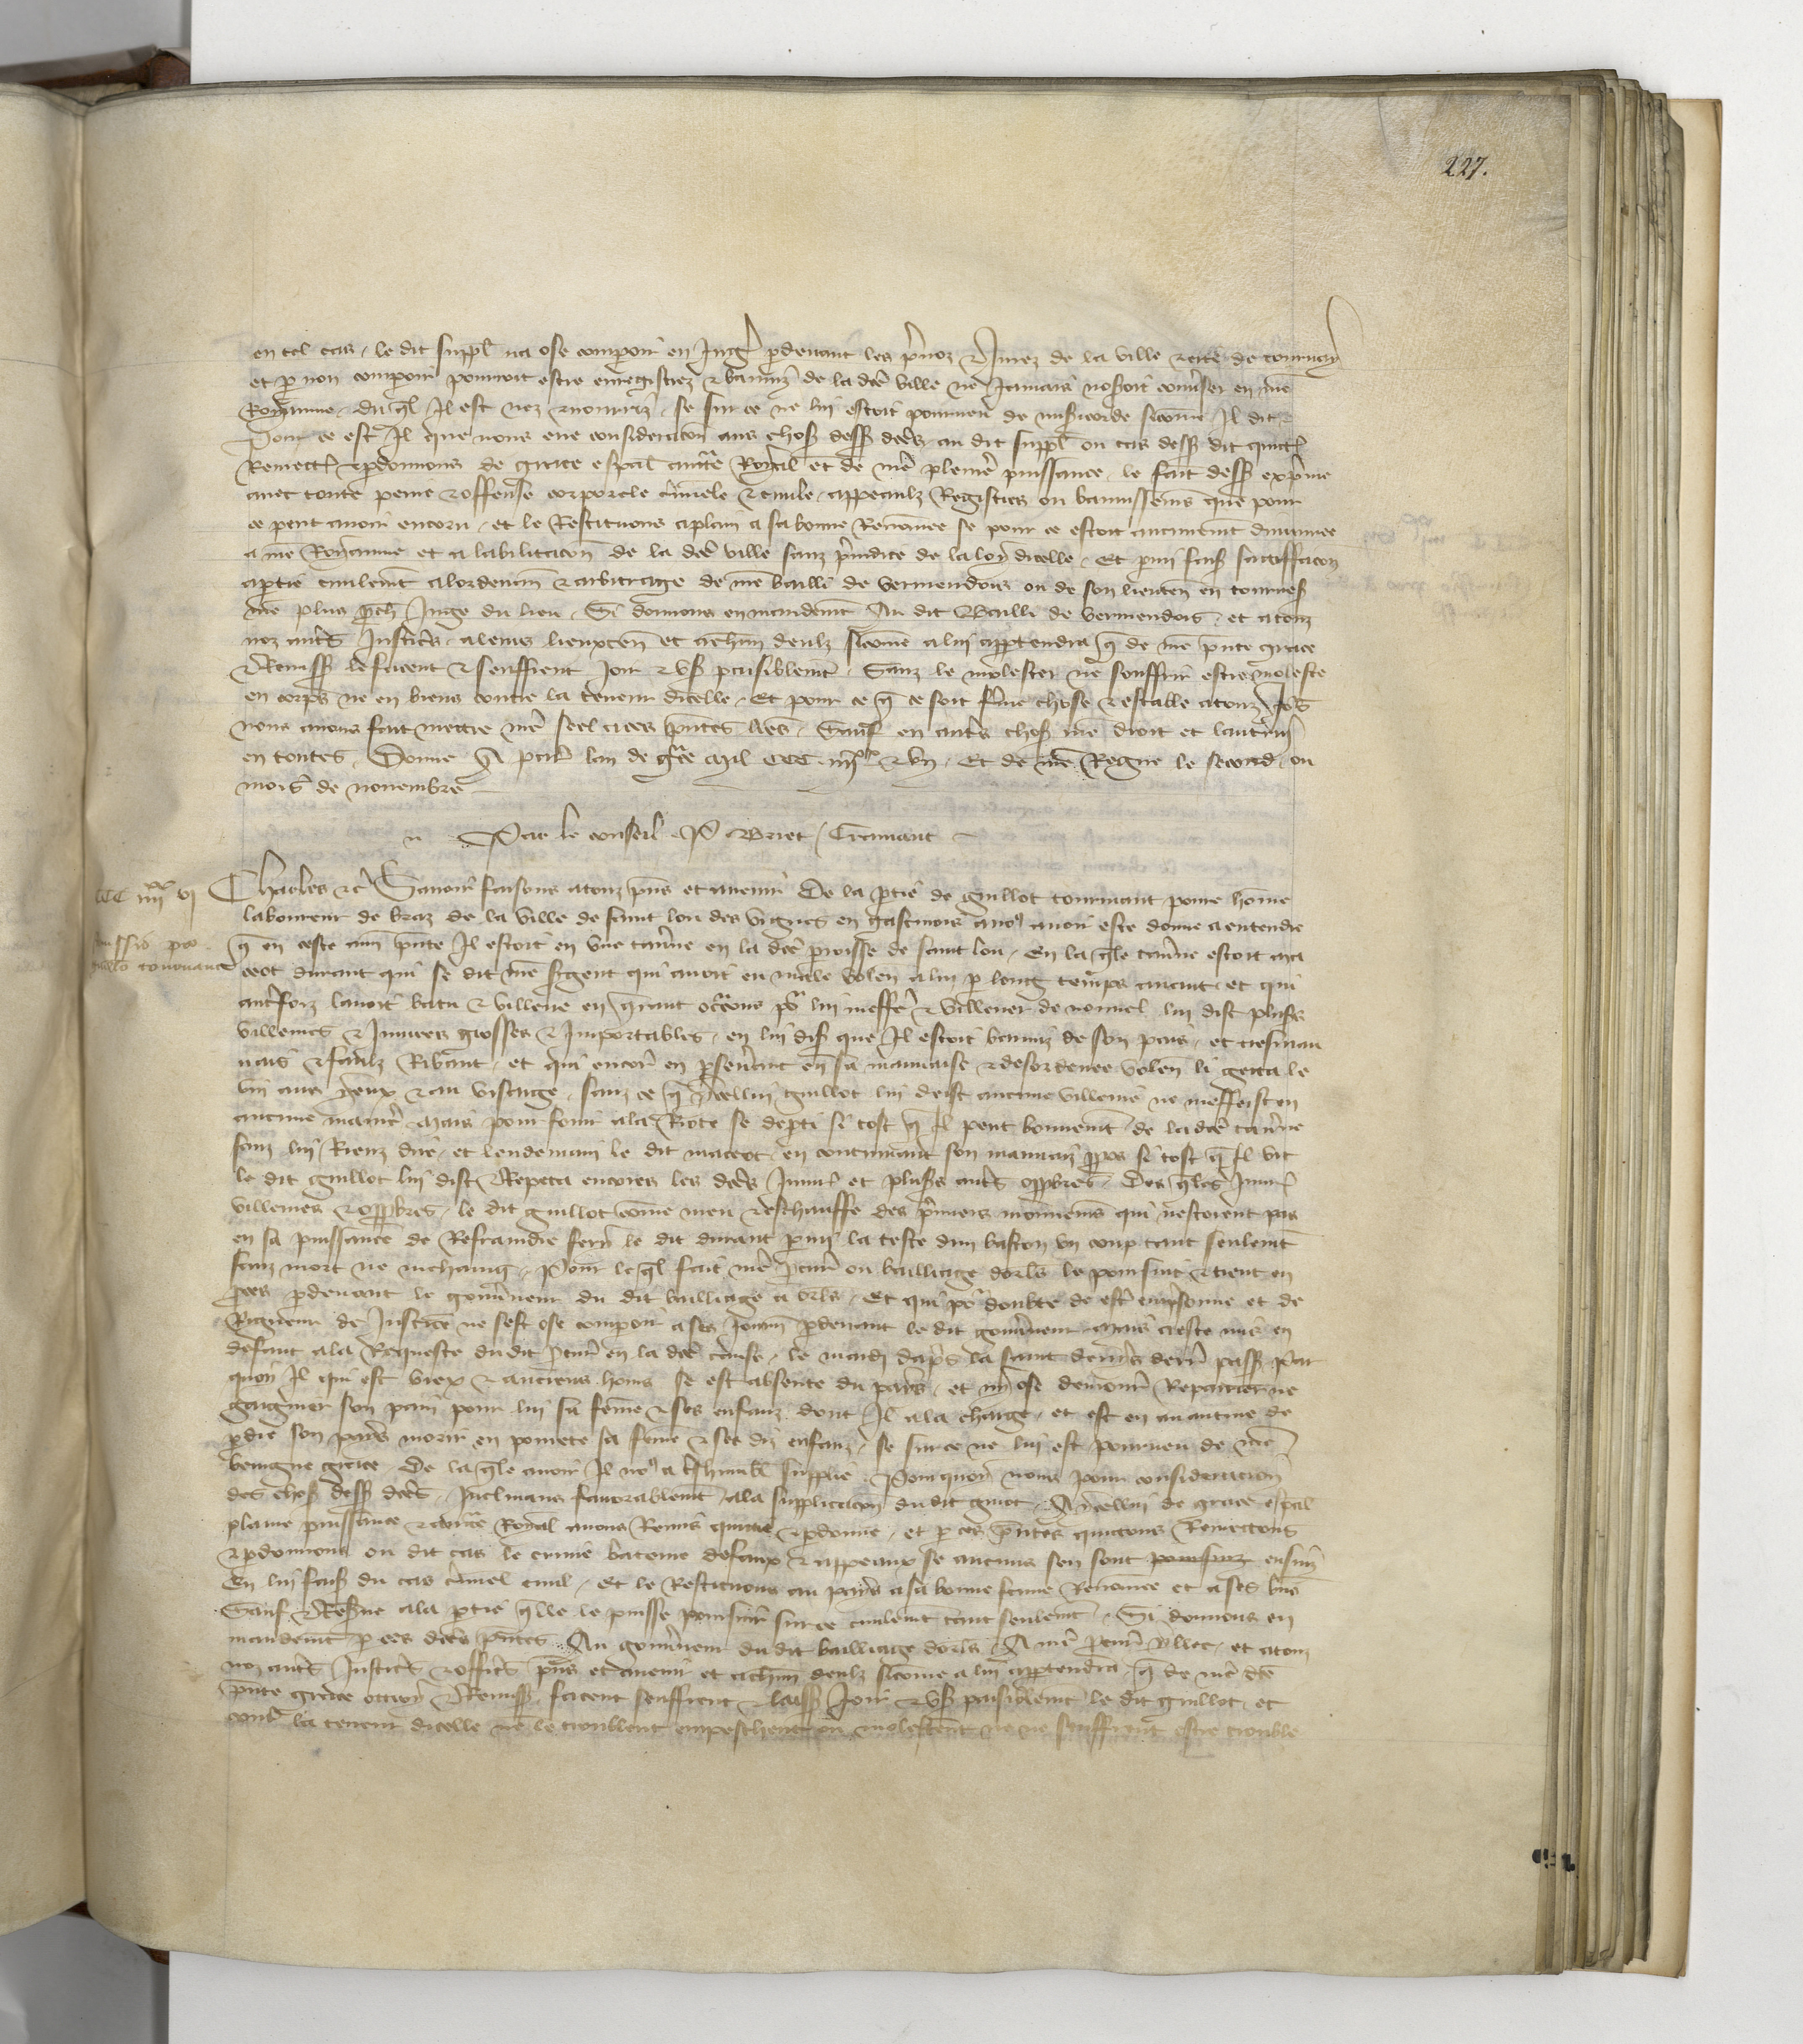 227.
en tel cas, le dit suppl na ose comparoir en Jugͭ pdevant les pͥvoz & Jurez de la ville & cite de tournay
et p non comparoir pourroit estre enregistrez & banniz de la dce ville ne Jamais noseroit converser en nre
Royaume, du ql Il est nez & nourriz, se sur ce ne lui estoit pourveu de misericorde sicomme Il dit
Pour ce est Il que nous eue consideracon aus choses dess dces, au dit suppl ou cas dess dit quictͬ
Remectͬ & pdonnons de grace espal auctͤ Royal et de nre pleniere puissance, le fait dess exprime
avec toute peine & offense corporele cminele & civile, appeaulx Registres ou bannissemens que pour
ce peut avoir encoru, et le Restituons aplain a sa bonne Renommee se pour ce estoit aucunemt diminuee
a nre Royaume et a labilitacon de la dce ville sanz preiudice de la loy dicelle, Et pmi fais satisfacon
aptie civilemt alordenance & arbitrage de nre bailli de vermendois ou de son lieuten en tournes
nre plus pch Juge du lieu, Si donnons en mandemt Au dit Bailli de vermendois, et atouz
noz autres Justiciers, aleurs lieuxten et achun deulx sicome a lui apptendra q de nre pnte grace
& Remiss le facent & seuffrent Joir & us paisiblemt, Sanz le molester ne souffrir estre moleste
en corps ne en biens contre la teneur dicelle, Et pour ce q ce soit ferme chose & estable atouz Jours
nous avons fait mettre nre seel aces pntes lres, Sauf en autres choses nre droit et lautruy
en toutes, Donne A paris lan de gce Mil CCC iiijˣˣ & un, Et de nre Regne le second, ou
mois de novembre
Par le conseil P Briet, Cremant
CCC iiijˣˣ vj
Charles &c Savoir faisons atouz pns et avenir De la ptie de guillot tournant povre homme
laboureur de braz de la ville de saint lou des vignes en gastinois nous avoir este donne a entendre
q en ceste ann pnte Il estoit en une tavne en la dce proisse de saint lou, En la qle tavne estoit ma
ceot durant qui se dit nre sergent qui avoit eu male volen a lui p long temps avant, et qui
autrefoiz lavoit batu & villene en grant pour lui meffe & villener de nouvel lui dist plus
villenies & Injures grosses & Importables, en lui dis que Il estoit banniz de son pais, et tresmau
vais & faulx Ribaut, et qui encor en pseverant en sa mauvaise & desordenee volen li getta le
vin aux yeux & au visage, sanz ce q Icellui guillot lui deist aucune villenie ne meffeist en
aucune manie Mais pour fouir ala Riote se depti si tost q Il peut bonnemt de ladce tavne
sanz lui Riens dire, et lendemain le dit maceot, en continuant son mauvaiz ppos si tost q Il vit
le dit guillot lui dist & Repeta encores les dces Injurͬ et plus autres opprobres, Des qles Injurͬ
villenies & opprobres, le dit guillot come meu & eschauffe des pͥmiers mouvemens qui nestoient pas
en sa puissance de Refraindre feri le dit durant pmi la teste dun baston un coup tant seulemt
sanz mort ne mehaing, Pour le ql fait nre pcur ou bailliage dorls le poursuit & tient en
pces pdevant le gouvneur du dit bailliage a orls, Et qui po doubte de estre emprisonne et de
Rigueur de Justice ne sest ose comparoir a ses Journ pdevant le dit gouvneur, mais a este mis en
defaut ala Requeste dudit pcur en la dce cause, le mardi dapres la saint denis derr pass par
quoy Il qui est viex & anciens homs se est absente du pais, et ny ose demourer Repairier ne
gaigner son pain pour lui sa feme & ses enfanz dont Il a la charge, et est en avanture de
pdre son pais morir en povrete sa feme & ses diz enfanz, se sur ce ne lui est pourveu de nre
benigne grace, De la qle avoir Il nous a treshumbl supplie, Pourquoy nous pour consideracion
des choses dess dces, Inclinans favorablemt ala supplicacon du dit guiot, A icellui de grace espal
plaine puissance & auctorite Royal avons Remis quicte & pdonne, et p ces pntes quictons Remectons
& pdonnons ou dit cas le crime bateure defaux & appeaux se aucuns sen sont poursuiz ensuiz
En lui fais du cas crimel civil, Et le Restituons au pais a sa bonne fame Renommee et a ses biens
Sauf & Reserve ala ptie qlle le puisse poursuir sur ce civilemt tant seulemt, Si donnons en
mandemt p ces dces pntes, Au gouvneur du dit bailliage dorls, A nre pcur Illec, et atouz
noz autres Justiciers & officiers pns et avenir et achun deulx sicome a lui apptendra, q de nre dce
pnte grace ottroy & Remiss facent seuffrent & laiss Joir & us paisiblemt le dit guillot, et
contre la teneur dicelle ne le troublent empeschent ou molestent ne ne seuffrent estre trouble